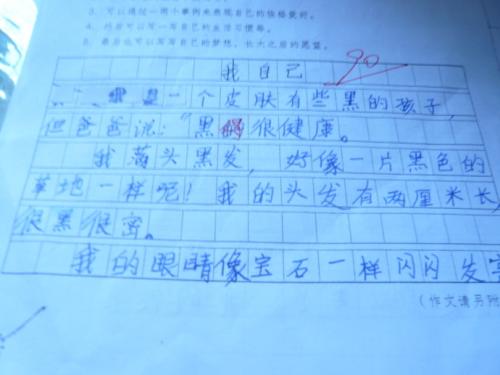 3. 可以通过一两个事例来表现自己的性格爱好。
4. 然后可以写一写自己的生活习惯等。
5. 最后也可以写写自己的梦想，长大之后的愿望。
我自己
90
一个皮肤有些黑的孩子，
但爸爸说："黑 很健康。
我满头黑发，好像一片黑色的
草地一样呢！我的头发有两厘米长，
很黑很密。
我的眼睛像宝石一样闪闪发
（作文请另附